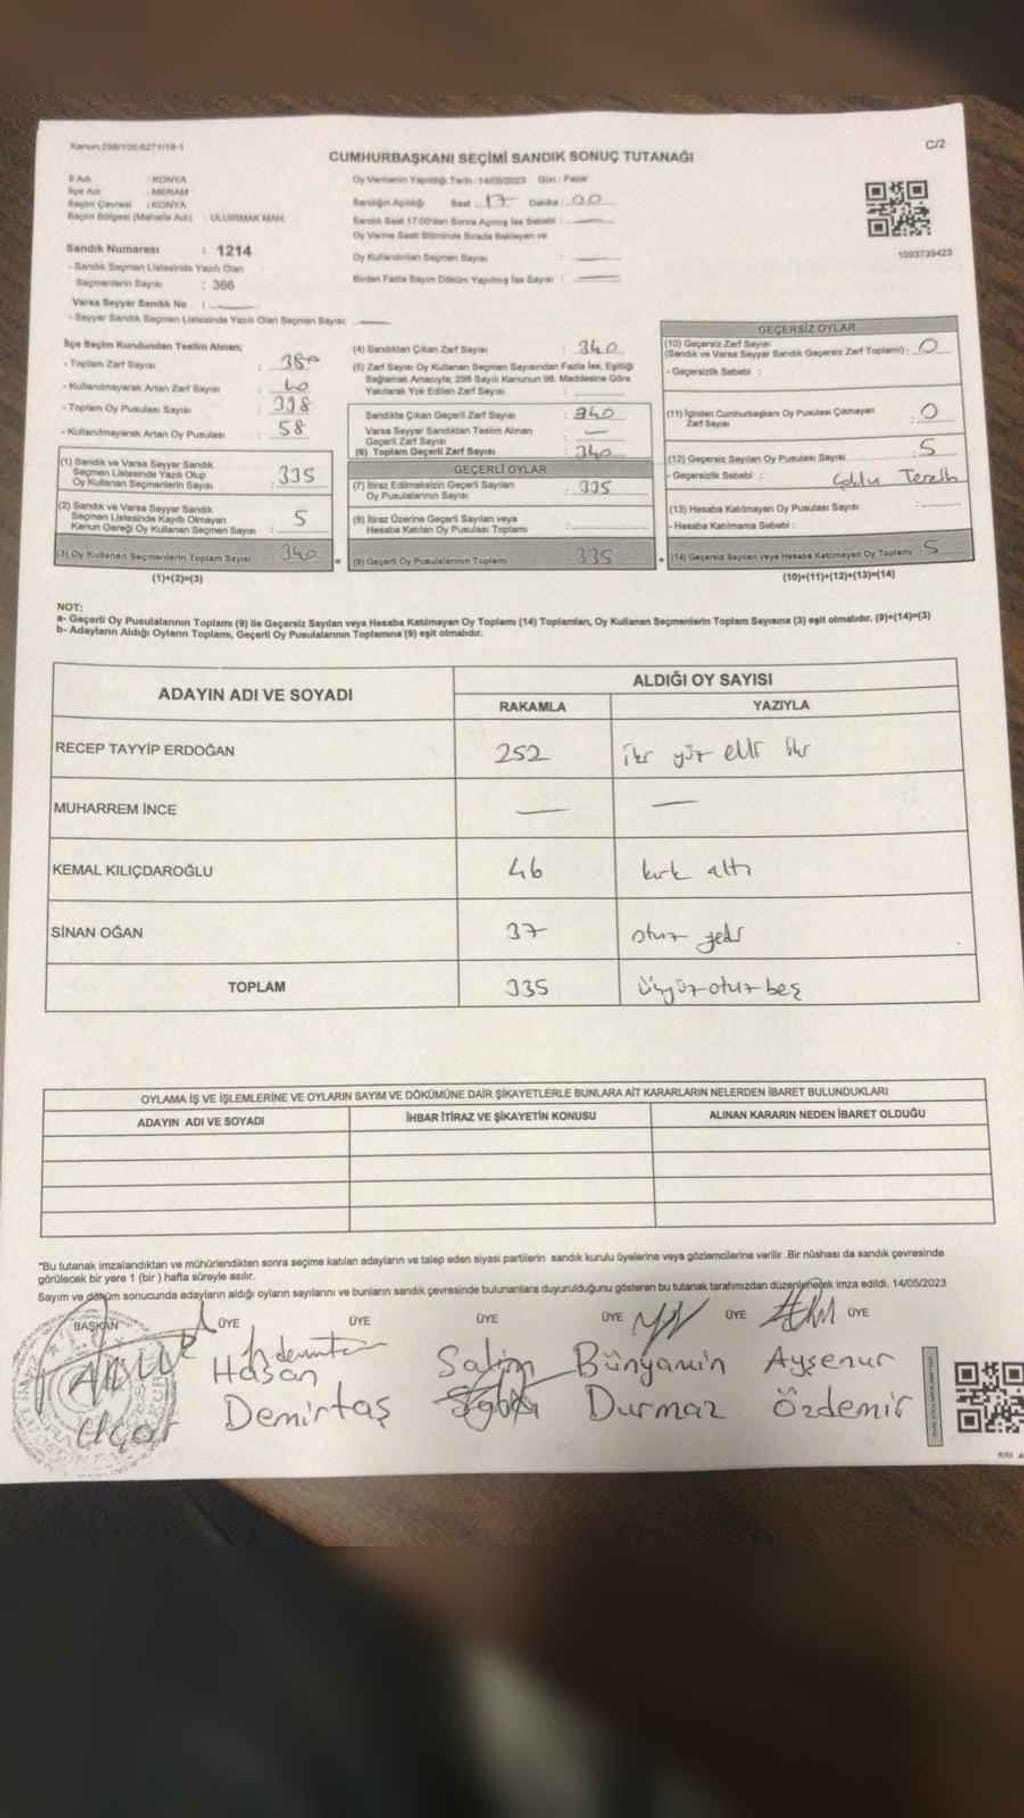 C/2
CUMHURBAŞKANI SEÇİMİ SANDIK SONUÇ TUTANAĞI
İl Adı : KONYA
İlçe Adı : MERAM
Seçim Çevresi : KONYA
Seçim Bölgesi (Mahalle Adı) : ULUIRMAK MAH.
Sandık Numarası : 1214
- Sandık Seçmen Listesinde Yazılı Olan
Seçmenlerin Sayısı : 366
Varsa Seyyar Sandık No :
- Seyyar Sandık Seçmen Listesinde Yazılı Olan Seçmen Sayısı:
Oy Vermenin Yapıldığı Tarih : 14/05/2023 Gün : Pazar
Sandığın Açıldığı Saat : 17 Dakika : 00
Sandık Saat 17:00'dan Sonra Açılmış İse Sebebi :
Oy Verme Saati Bitiminde Sırada Bekleyen ve
Oy Kullandırılan Seçmen Sayısı :
Birden Fazla Sayım Döküm Yapılmış İse Sayısı :
1093739423
İlçe Seçim Kurulundan Teslim Alınan;
- Toplam Zarf Sayısı : 380
- Kullanılmayarak Artan Zarf Sayısı : 40
- Toplam Oy Pusulası Sayısı : 398
- Kullanılmayarak Artan Oy Pusulası : 58
(1) Sandık ve Varsa Seyyar Sandık
Seçmen Listesinde Yazılı Olup
Oy Kullanan Seçmenlerin Sayısı : 335
(2) Sandık ve Varsa Seyyar Sandık
Seçmen Listesinde Kayıtlı Olmayan
Kanun Gereği Oy Kullanan Seçmen Sayısı : 5
(3) Oy Kullanan Seçmenlerin Toplam Sayısı 340
(1)+(2)=(3)
(4) Sandıktan Çıkan Zarf Sayısı : 340
(5) Zarf Sayısı Oy Kullanan Seçmen Sayısından Fazla İse, Eşitliği
Sağlamak Amacıyla, 298 Sayılı Kanunun 98. Maddesine Göre
Yakılarak Yok Edilen Zarf Sayısı :
Sandıkta Çıkan Geçerli Zarf Sayısı : 340
Varsa Seyyar Sandıktan Teslim Alınan
Geçerli Zarf Sayısı : —
(6) Toplam Geçerli Zarf Sayısı : 340
GEÇERLİ OYLAR
(7) İtiraz Edilmeksizin Geçerli Sayılan
Oy Pusulalarının Sayısı : 335
(8) İtiraz Üzerine Geçerli Sayılan veya
Hesaba Katılan Oy Pusulası Toplamı :
(9) Geçerli Oy Pusulalarının Toplamı 335
GEÇERSİZ OYLAR
(10) Geçersiz Zarf Sayısı
(Sandık ve Varsa Seyyar Sandık Geçersiz Zarf Toplamı) : 0
- Geçersizlik Sebebi :
(11) İçinden Cumhurbaşkanı Oy Pusulası Çıkmayan
Zarf Sayısı : 0
(12) Geçersiz Sayılan Oy Pusulası Sayısı : 5
- Geçersizlik Sebebi : Çoklu Tercih
(13) Hesaba Katılmayan Oy Pusulası Sayısı :
- Hesaba Katılmama Sebebi :
(14) Geçersiz Sayılan veya Hesaba Katılmayan Oy Toplamı 5
(10)+(11)+(12)+(13)=(14)
NOT:
a- Geçerli Oy Pusulalarının Toplamı (9) ile Geçersiz Sayılan veya Hesaba Katılmayan Oy Toplamı (14) Toplamları, Oy Kullanan Seçmenlerin Toplam Sayısına (3) eşit olmalıdır. (9)+(14)=(3)
b- Adayların Aldığı Oyların Toplamı, Geçerli Oy Pusulalarının Toplamına (9) eşit olmalıdır.
ADAYIN ADI VE SOYADI
ALDIĞI OY SAYISI
RAKAMLA YAZIYLA
RECEP TAYYİP ERDOĞAN 252 iki yüz elli iki
MUHARREM İNCE — —
KEMAL KILIÇDAROĞLU 46 kırk altı
SİNAN OĞAN 37 otuz yedi
TOPLAM 335 üçyüz otuz beş
OYLAMA İŞ VE İŞLEMLERİNE VE OYLARIN SAYIM VE DÖKÜMÜNE DAİR ŞİKAYETLERLE BUNLARA AİT KARARLARIN NELERDEN İBARET BULUNDUKLARI
ADAYIN ADI VE SOYADI İHBAR İTİRAZ VE ŞİKAYETİN KONUSU ALINAN KARARIN NEDEN İBARET OLDUĞU
"Bu tutanak imzalandıktan ve mühürlendikten sonra seçime katılan adayların ve talep eden siyasi partilerin sandık kurulu üyelerine veya gözlemcilerine verilir .Bir nüshası da sandık çevresinde
görülecek bir yere 1 (bir ) hafta süreyle asılır.
Sayım ve döküm sonucunda adayların aldığı oyların sayılarını ve bunların sandık çevresinde bulunanlara duyurulduğunu gösteren bu tutanak tarafımızdan düzenlenerek imza edildi. 14/05/2023
BAŞKAN ÜYE ÜYE ÜYE ÜYE ÜYE ÜYE
Hasan Salim Bünyamin Ayşenur
Uçar Demirtaş Durmaz Özdemir